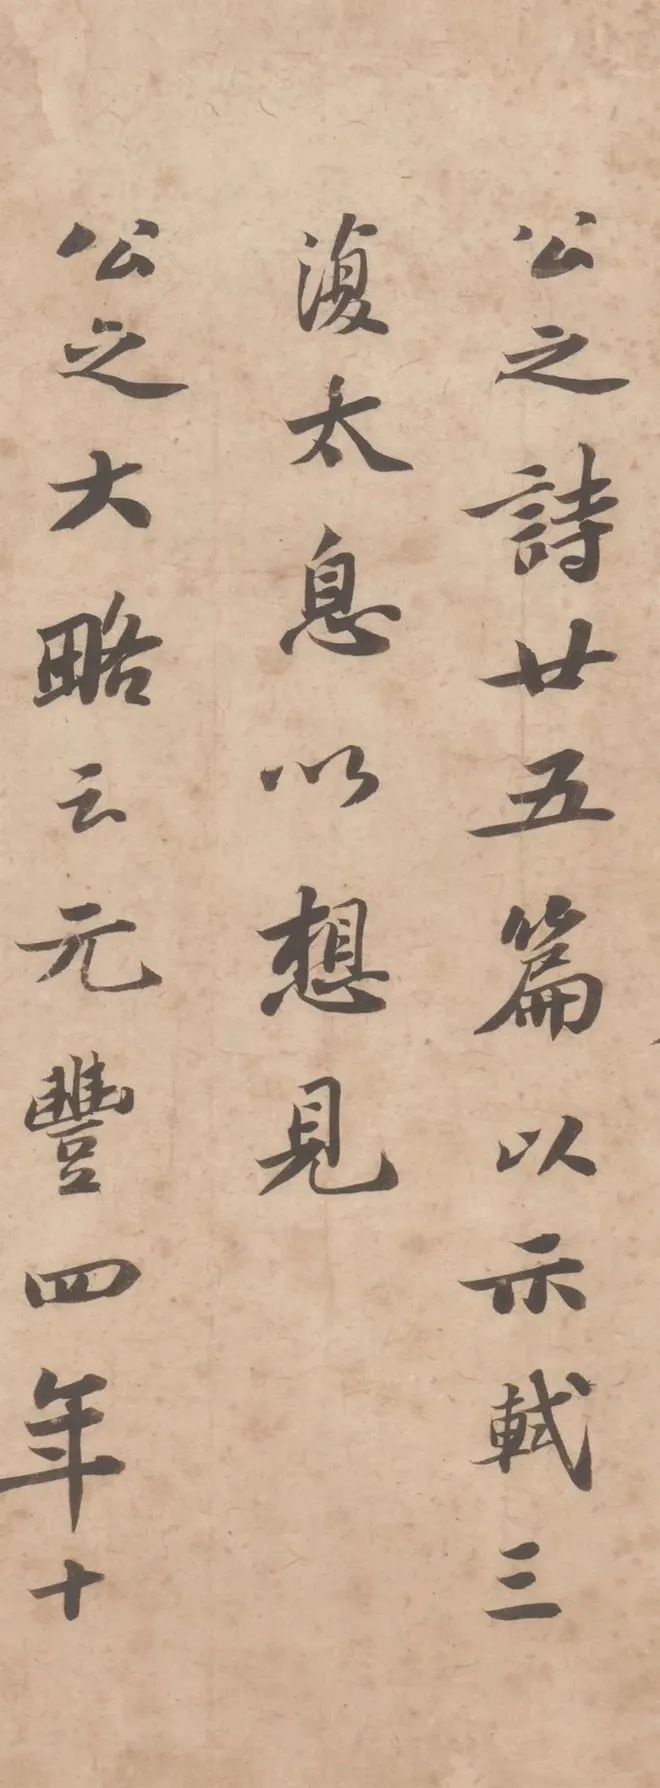 公之詩廿五篇以示軾三
復太息以想見
公之大略云元豐四年十